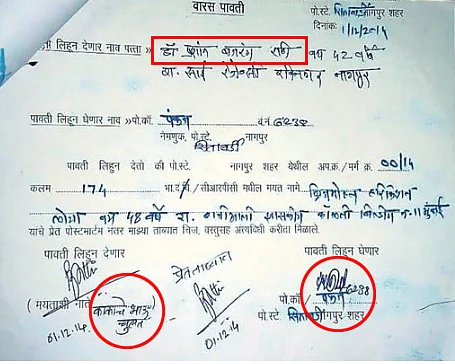 वारस पावती
पो.स्टे. सिताबर्डी नागपूर शहर
दिनांक: 1/12/2014
पावती लिहुन देणार नाव पत्ता » डॉ. प्रशांत बजरंग राठी वय 42 वर्षे
रा. साई रेसिडेन्सी नागपूर
पावती लिहुन घेणार नाव » पो.कॉ. पंकज ब.नं. 6238
नेमणुक पो.स्टे. नागपूर
सिताबर्डी
पावती लिहुन देतो की पो.स्टे. नागपूर शहर येथील अप.क्र./मर्ग क्र. 00/14
कलम 174 भा.द.वि./सीआरपीसी मधील मयत नामे ब्रिजगोपाल हरकिशन
लोया वय 48 वर्षे रा. कॉलनी मुंबई
यांचे प्रेत पोस्टमार्टम नंतर माझ्या ताब्यात मिळाले, वस्तुसह अंत्यविधी करीता मिळाले.
पावती लिहुन देणार
पावती लिहुन घेणार
(मयताशी नाते काकाचे भाऊ
चुलत
01.12.14
01.12.14
6238
पो.कॉ. पंकज
पो.स्टे. सिताबर्डी नागपूर शहर